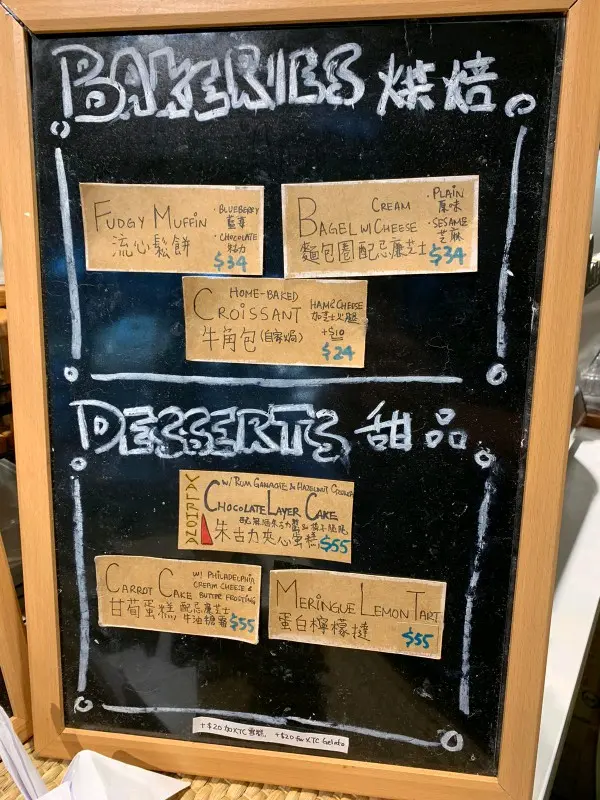 BAKERIES 烘焙
FUDGY MUFFIN
流心鬆餅
· BLUEBERRY
藍莓
· CHOCOLATE
朱古力
$34
BAGEL W/ CREAM CHEESE
麵包圈配忌廉芝士
· PLAIN
原味
· SESAME
芝麻
$34
HOME-BAKED
CROISSANT
牛角包(自家焗)
HAM&CHEESE
加芝士火腿
+$10
$24
DESSERTS 甜品
VALRHONA
W/ RUM GANACHE & HAZELNUT CRUNCH
CHOCOLATE LAYER CAKE
朱古力夾心蛋糕 $55
CARROT CAKE
W/ PHILADELPHIA
CREAM CHEESE &
BUTTER FROSTING
甘荀蛋糕 配忌廉芝士
牛油糖霜 $55
MERINGUE LEMON TART
蛋白檸檬撻
$55
+$20 加KTC雪糕, +$20 for KTC Gelato